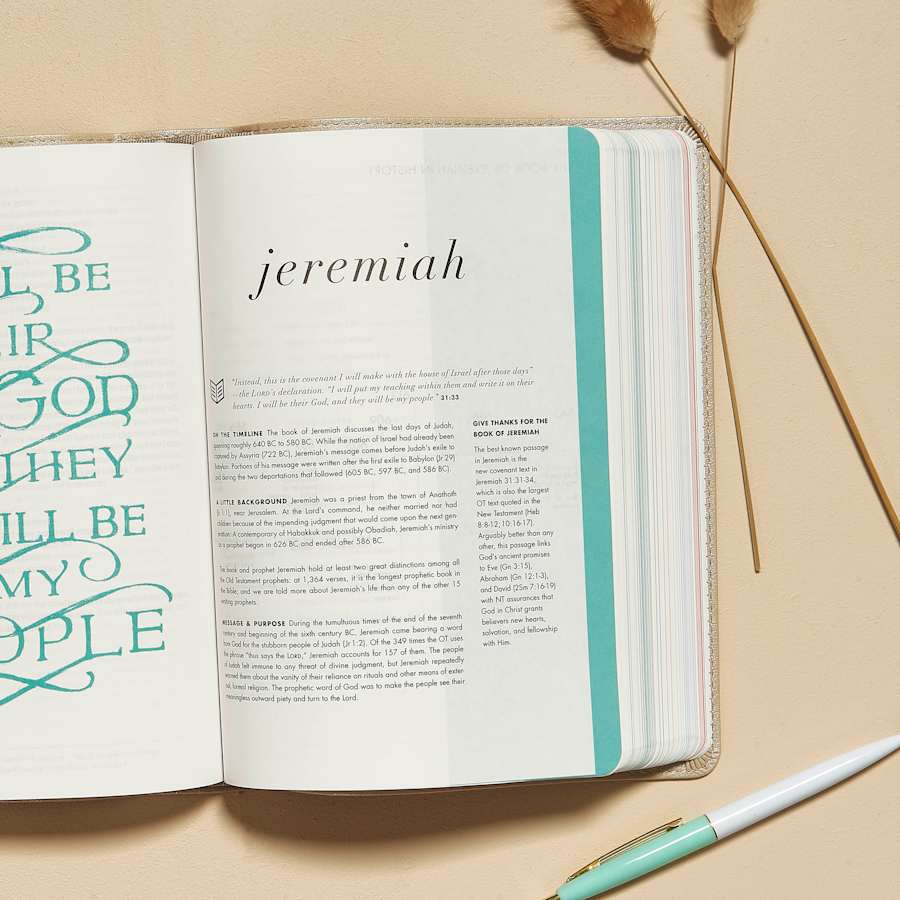 LL BE
EIR
GOD
THEY
WILL BE
MY
PEOPLE
jeremiah
"Instead, this is the covenant I will make with the house of Israel after those days"
—the LORD's declaration. "I will put my teaching within them and write it on their
hearts. I will be their God, and they will be my people." 31:33
ON THE TIMELINE The book of Jeremiah discusses the last days of Judah,
spanning roughly 640 BC to 580 BC. While the nation of Israel had already been
captured by Assyria (722 BC), Jeremiah's message comes before Judah's exile to
Babylon. Portions of his message were written after the first exile to Babylon (Jr 29)
and during the two deportations that followed (605 BC, 597 BC, and 586 BC).
A LITTLE BACKGROUND Jeremiah was a priest from the town of Anathoth
(1:1), near Jerusalem. At the Lord's command, he neither married nor had
children because of the impending judgment that would come upon the next gen-
eration. A contemporary of Habakkuk and possibly Obadiah, Jeremiah's ministry
as a prophet began in 626 BC and ended after 586 BC.
The book and prophet Jeremiah hold at least two great distinctions among all
the Old Testament prophets: at 1,364 verses, it is the longest prophetic book in
the Bible; and we are told more about Jeremiah's life than any of the other 15
writing prophets.
MESSAGE & PURPOSE During the tumultuous times of the end of the seventh
century and beginning of the sixth century BC, Jeremiah came bearing a word
from God for the stubborn people of Judah (Jr 1:2). Of the 349 times the OT uses
the phrase "thus says the LORD," Jeremiah accounts for 157 of them. The people
of Judah felt immune to any threat of divine judgment, but Jeremiah repeatedly
warned them about the vanity of their reliance on rituals and other means of exter-
nal, formal religion. The prophetic word of God was to make the people see their
meaningless outward piety and turn to the Lord.
GIVE THANKS FOR THE
BOOK OF JEREMIAH
The best known passage
in Jeremiah is the
new covenant text in
Jeremiah 31:31-34,
which is also the largest
OT text quoted in the
New Testament (Heb
8:8-12; 10:16-17).
Arguably better than any
other, this passage links
God's ancient promises
to Eve (Gn 3:15),
Abraham (Gn 12:1-3),
and David (2Sm 7:16-19)
with NT assurances that
God in Christ grants
believers new hearts,
salvation, and fellowship
with Him.